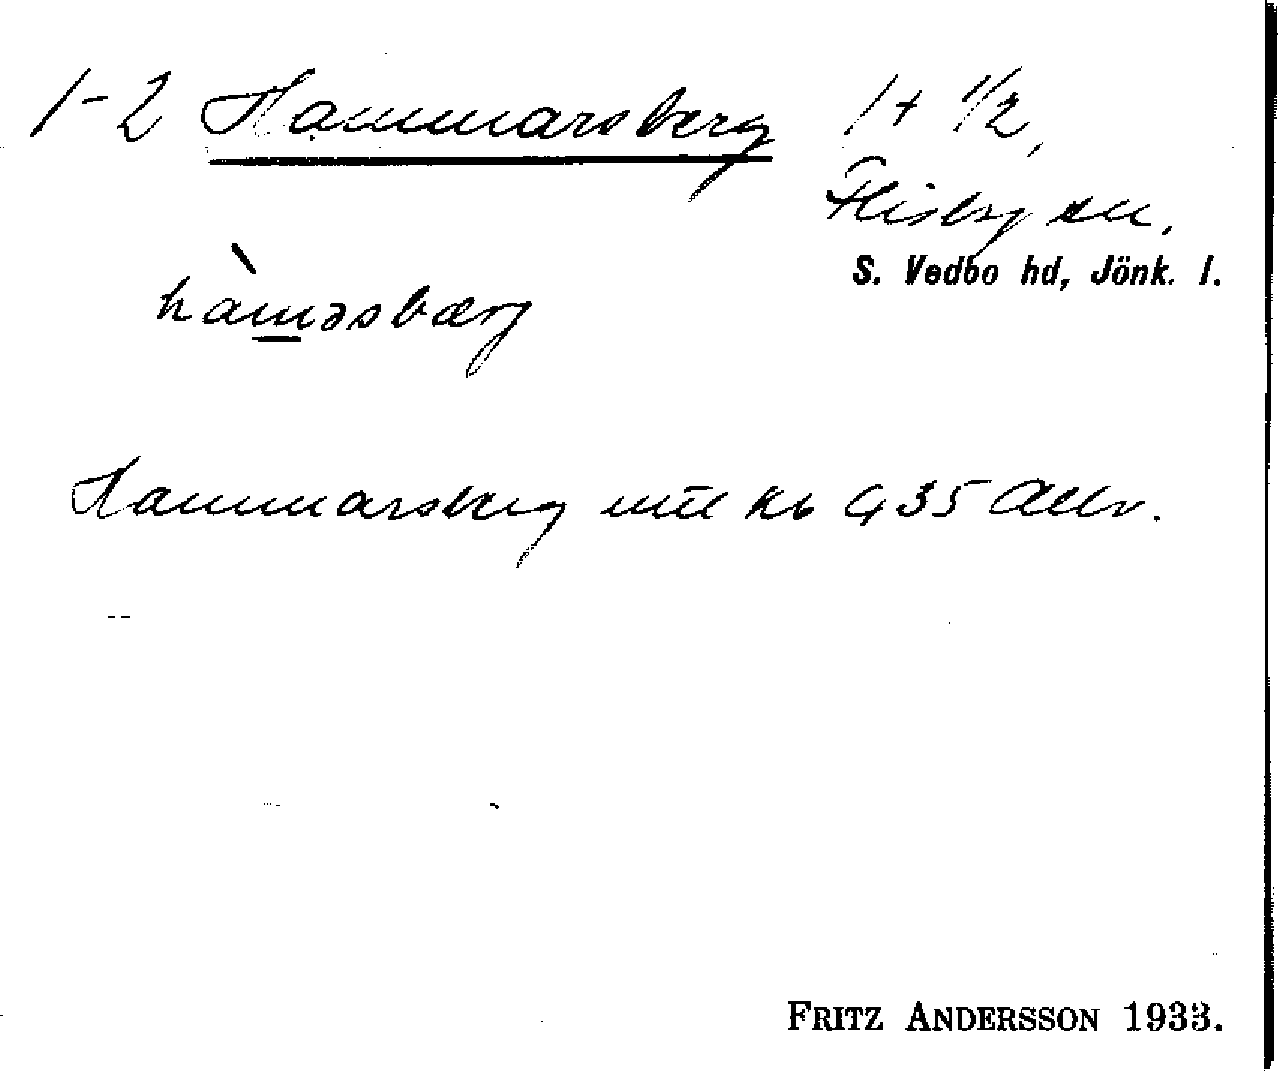 1-2 Hammarsberg 1+ 1/2,
Flisby sn.
S. Vedbo hd, Jönk. l.
hàm̲əsbærg
Hammarsberg kb G 35
FRITZ ANDERSSON 1933.